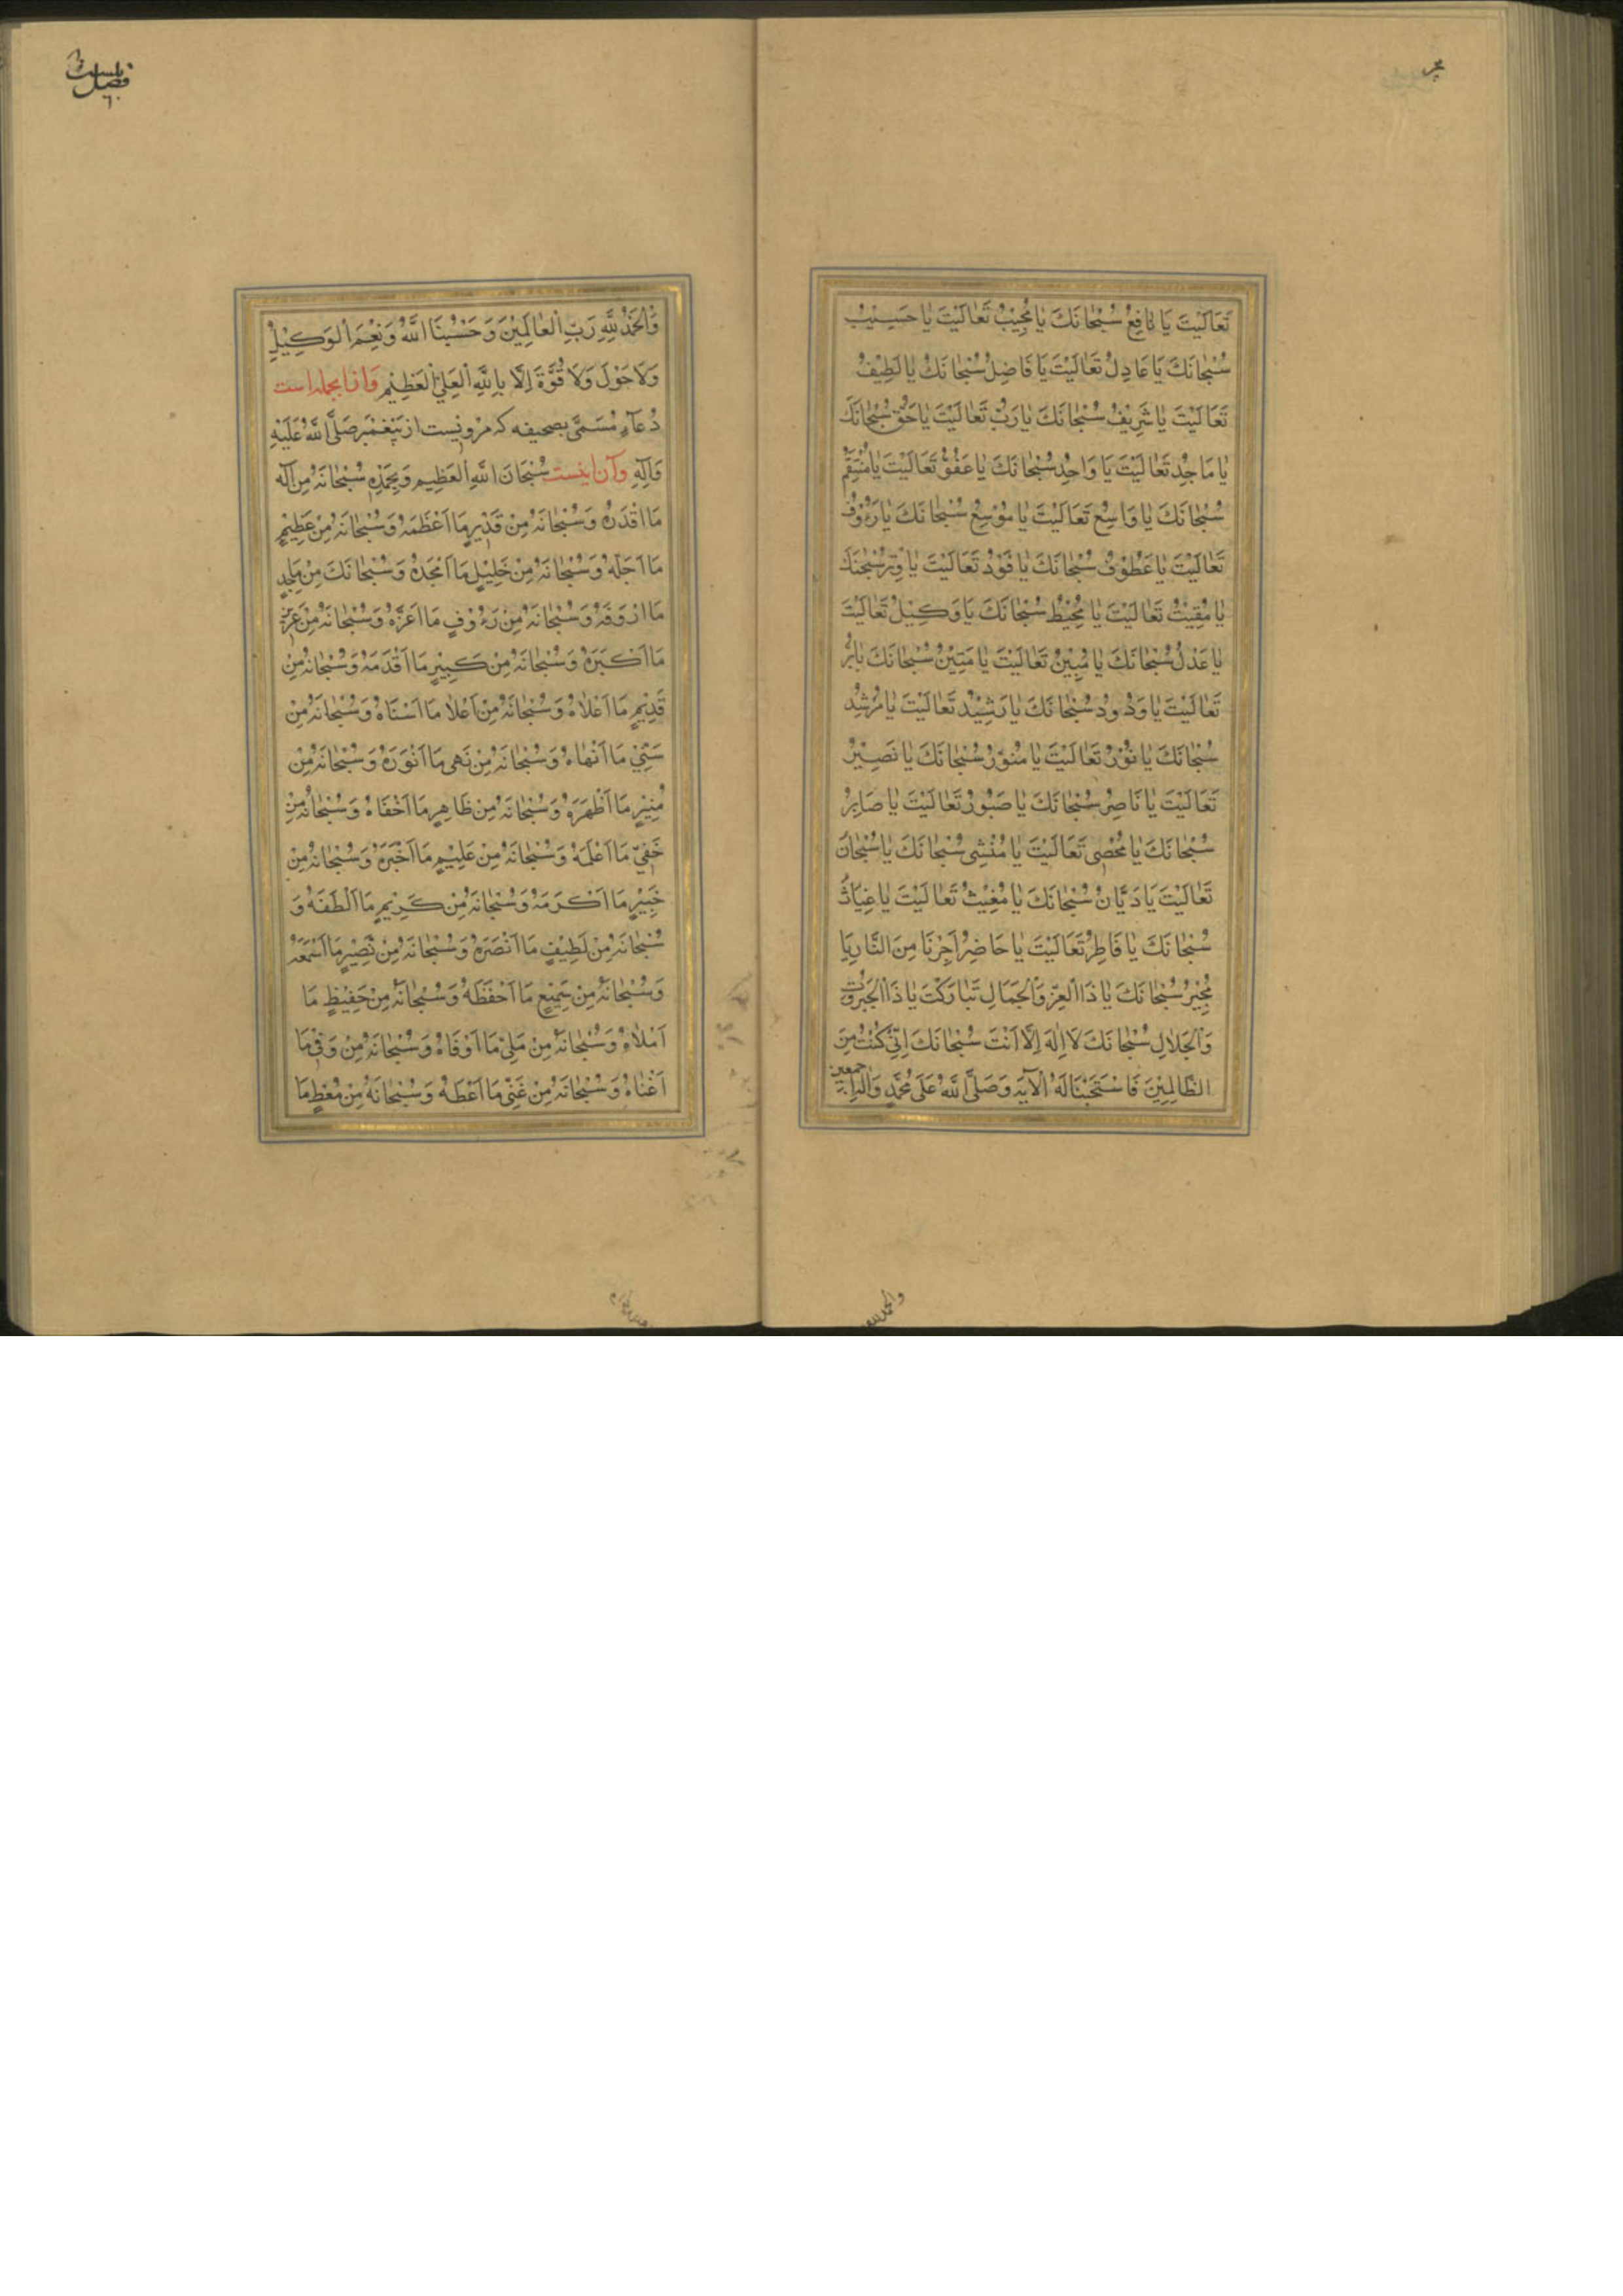 تَعَالَيْتَ يَا نَافِعُ سُبْحَانَكَ يَا مُجِيبُ تَعَالَيْتَ يَا حَسِيبُ
سُبْحَانَكَ يَا عَادِلُ تَعَالَيْتَ يَا فَاضِلُ سُبْحَانَكَ يَا لَطِيفُ
تَعَالَيْتَ يَا شَرِيفُ سُبْحَانَكَ يَا رَبُّ تَعَالَيْتَ يَا حَقُّ سُبْحَانَكَ
يَا مَاجِدُ تَعَالَيْتَ يَا وَاحِدُ سُبْحَانَكَ يَا عَفُوُّ تَعَالَيْتَ يَا مُنْتَقِمُ
سُبْحَانَكَ يَا وَاسِعُ تَعَالَيْتَ يَا مُوسِعُ سُبْحَانَكَ يَا رَءُوفُ
تَعَالَيْتَ يَا عَطُوفُ سُبْحَانَكَ يَا فَرْدُ تَعَالَيْتَ يَا وِتْرُ سُبْحَانَكَ
يَا مُقِيتُ تَعَالَيْتَ يَا مُحِيطُ سُبْحَانَكَ يَا وَكِيلُ تَعَالَيْتَ
يَا عَدْلُ سُبْحَانَكَ يَا مُبِينُ تَعَالَيْتَ يَا مَتِينُ سُبْحَانَكَ يَا بَرُّ
تَعَالَيْتَ يَا وَدُودُ سُبْحَانَكَ يَا رَشِيدُ تَعَالَيْتَ يَا مُرْشِدُ
سُبْحَانَكَ يَا نُورُ تَعَالَيْتَ يَا مُنَوِّرُ سُبْحَانَكَ يَا نَصِيرُ
تَعَالَيْتَ يَا نَاصِرُ سُبْحَانَكَ يَا صَبُورُ تَعَالَيْتَ يَا صَابِرُ
سُبْحَانَكَ يَا مُحْصِي تَعَالَيْتَ يَا مُنْشِي سُبْحَانَكَ يَا سُبْحَانَ
تَعَالَيْتَ يَا دَيَّانُ سُبْحَانَكَ يَا مُغِيثُ تَعَالَيْتَ يَا غِيَاثُ
سُبْحَانَكَ يَا فَاطِرُ تَعَالَيْتَ يَا حَاضِرُ أَجِرْنَا مِنَ النَّارِ يَا
مُجِيرُ سُبْحَانَكَ يَا ذَا الْعِزِّ وَالْجَمَالِ تَبَارَكْتَ يَا ذَا الْجَبَرُوتِ
وَالْجَلَالِ سُبْحَانَكَ لَا إِلَهَ إِلَّا أَنْتَ سُبْحَانَكَ إِنِّي كُنْتُ مِنَ
الظَّالِمِينَ فَاسْتَجَبْنَا لَهُ الْآيَةَ وَصَلَّى اللَّهُ عَلَى مُحَمَّدٍ وَآلِهِ أَجْمَعِينَ
فصل بیست
وَالْحَمْدُ لِلَّهِ رَبِّ الْعَالَمِينَ وَحَسْبُنَا اللَّهُ وَنِعْمَ الْوَكِيلُ
وَلَا حَوْلَ وَلَا قُوَّةَ إِلَّا بِاللَّهِ الْعَلِيِّ الْعَظِيمِ وَازانجمله است
دُعَاءِ مُسَمَّى بصحیفه که مرویست از پیغمبر صَلَّى اللَّهُ عَلَيْهِ
وَآلِهِ وآن اینست سُبْحَانَ اللَّهِ الْعَظِيمِ وَبِحَمْدِهِ سُبْحَانَهُ مِنْ إِلَهٍ
مَا أَقْدَرَهُ وَسُبْحَانَهُ مِنْ قَدِيرٍ مَا أَعْظَمَهُ وَسُبْحَانَهُ مِنْ عَظِيمٍ
مَا أَجَلَّهُ وَسُبْحَانَهُ مِنْ جَلِيلٍ مَا أَمْجَدَهُ وَسُبْحَانَكَ مِنْ مَاجِدٍ
مَا أَرْوَفَهُ وَسُبْحَانَهُ مِنْ رَءُوفٍ مَا أَعَزَّهُ وَسُبْحَانَهُ مِنْ عَزِيزٍ
مَا أَكْبَرَهُ وَسُبْحَانَهُ مِنْ كَبِيرٍ مَا أَقْدَمَهُ وَسُبْحَانَهُ مِنْ
قَدِيمٍ مَا أَعْلَاهُ وَسُبْحَانَهُ مِنْ أَعْلَا مَا أَسْنَاهُ وَسُبْحَانَهُ مِنْ
سَنِيٍّ مَا أَبْهَاهُ وَسُبْحَانَهُ مِنْ بَهِيٍّ مَا أَنْوَرَهُ وَسُبْحَانَهُ مِنْ
مُنِيرٍ مَا أَظْهَرَهُ وَسُبْحَانَهُ مِنْ ظَاهِرٍ مَا أَخْفَاهُ وَسُبْحَانَهُ مِنْ
خَفِيٍّ مَا أَعْلَمَهُ وَسُبْحَانَهُ مِنْ عَلِيمٍ مَا أَخْبَرَهُ وَسُبْحَانَهُ مِنْ
خَبِيرٍ مَا أَكْرَمَهُ وَسُبْحَانَهُ مِنْ كَرِيمٍ مَا أَلْطَفَهُ وَ
سُبْحَانَهُ مِنْ لَطِيفٍ مَا أَبْصَرَهُ وَسُبْحَانَهُ مِنْ بَصِيرٍ مَا أَسْمَعَهُ
وَسُبْحَانَهُ مِنْ سَمِيعٍ مَا أَحْفَظَهُ وَسُبْحَانَهُ مِنْ حَفِيظٍ مَا
أَمْلَاهُ وَسُبْحَانَهُ مِنْ مَلِيٍّ مَا أَوْفَاهُ وَسُبْحَانَهُ مِنْ وَفِيٍّ مَا
أَغْنَاهُ وَسُبْحَانَهُ مِنْ غَنِيٍّ مَا أَعْطَهُ وَسُبْحَانَهُ مِنْ مُعْطٍ مَا